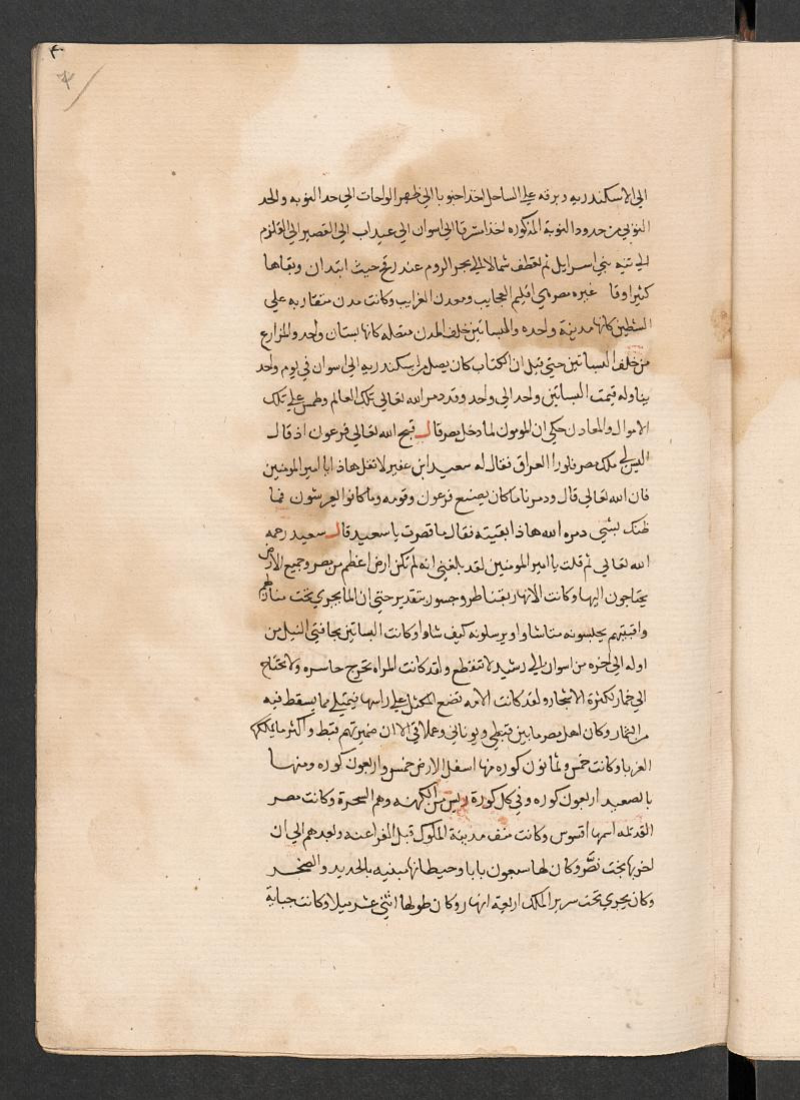 الى الاسكندريه وبرقه على الساحل اخذ اجنوبا الى ظهر الواحات الى حد النوبه والحد
من حدود النوبة المذكوره اخذا شرقا الى اسوان الى عيداب الى القصير الى القلزم
الى تيه بني اسرايل ثم يعطف شمالا الى بحر الروم عند رفح حيث ابتدان وبقاها
كثيرا وقا غيره مصر هي اقليم العجايب ومعدن الغرايب وكانت مدن متقاربه على
الشطين كانها مدينة واحده والبساتين خلف المدن متصله كانها بستان واحد والمزارع
من خلف البساتين حتى قيل ان الكتاب كان يصل من اسكندريه الى اسوان في يوم واحد
يناوله قيمت البساتين واحد الى واحد وقد دمر الله تعالى تلك العالم وطمس على تلك
الاموال والمعادن حكي ان المومون لما دخل مصر قال قبح الله تعالى فرعون اذ قال
اليس لي ملك مصر فلو را العراق فقال له سعيد ابن عفير لا تقل هاذا يا امير المومنين
فان الله تعالى قال ودمرنا ما كان يصنع فرعون وقومه وما كانوا يعرشون فما
ظنك بشي دمره الله هاذا بقيته فقال ما قصرت يا سعيد قال سعيد رحمه
الله تعالى ثم قلت يا امير المومنين لقد بلغني انه لم تكن ارض اعظم من مصر وجميع الارض
يحتاجون اليها وكانت الانهار بقناطر وجسور بتقدير حتى ان الما يجري تحت منازلهم
وافنيتهم يحبسونه متا شاوا ويرسلونه كيف شاوا وكانت البساتين بحافتي النيل من
اوله الى اخره من اسوان الى رشيد لا تنقطع ولقد كانت المراه تخرج حاسره ولا تحتاج
الى خمار لكثرة الاشجار ولقد كانت الامه تضع المكتل على راسها فيمتلي مما يسقط فيه
من الثمار وكان اهل مصر ما بين قبطي ويوناني وعملاقي الا ان ضميرتهم قبط واكثر ما يملكها
الغربا وكانت خمس وثمانون كوره منها اسفل الارض خمس واربعون كوره ومنها
بالصعيد اربعون كوره وفي كل كورة ريس من الكهنه وهم السحرة وكانت مصر
القديمه اسمها اقسوس وكانت منف مدينة الملوك قبل الفراعنه وبعدهم الى ان
اخربها بخت نصر وكان لها سبعون بابا وحيطانها مبنيه بالحديد والصخر
وكان يجري تحت سرير الملك اربعة انهار وكان طولها اثني عشر ميلا وكانت جباية